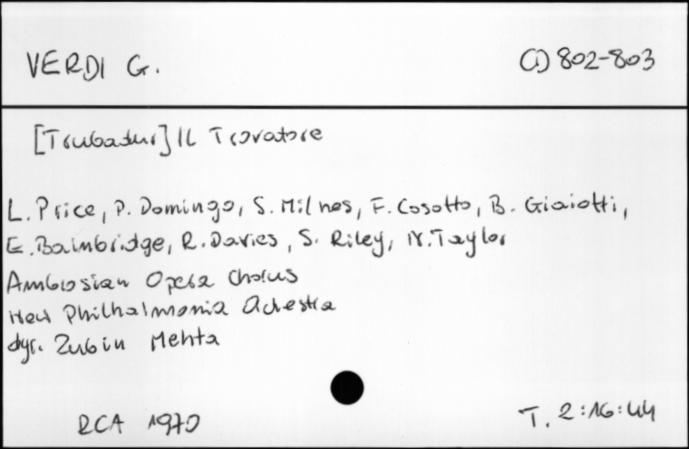 VERDI G.
CD 802-803
[Trubadur] IL Trovatore
L. Price, P. Domingo, S. Milnes, F. Cosotto, B. Giaiotti,
E. Bainbridge, R. Davies, S. Riley, N. Taylor
Ambrosian Opera Chorus
New Philhalmonia Orchestra
dyr. Zubin Mehta
RCA 1970
T. 2:16:44